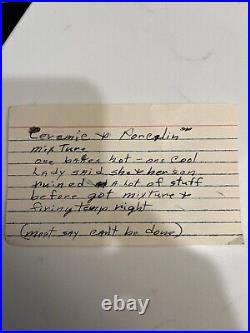 Ceramic & Porcelin
mixture
one bakes hot - one cool
Lady said she & person
ruined a lot of stuff
before got mixture &
firing temp right
(most say can't be done)